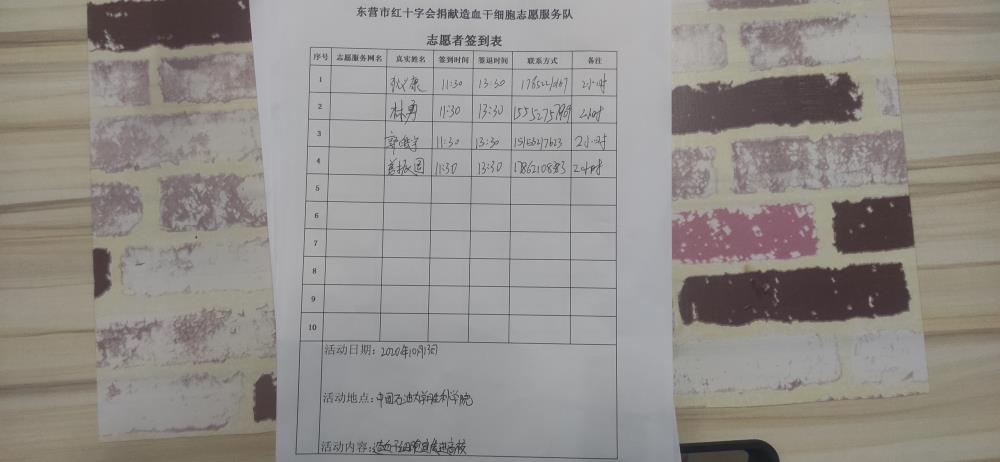 东营市红十字会捐献造血干细胞志愿服务队
志愿者签到表
序号 志愿服务网名 真实姓名 签到时间 签退时间 联系方式 备注
1 11:30 13:30 2小时
2 林勇 11:30 13:30 2小时
3 11:30 13:30 15155217623 2小时
4 11:30 13:30 2小时
5
6
7
8
9
10
活动日期：2020年10月13日
活动地点：中国石油大学胜利学院
活动内容：造血干细胞宣传进高校